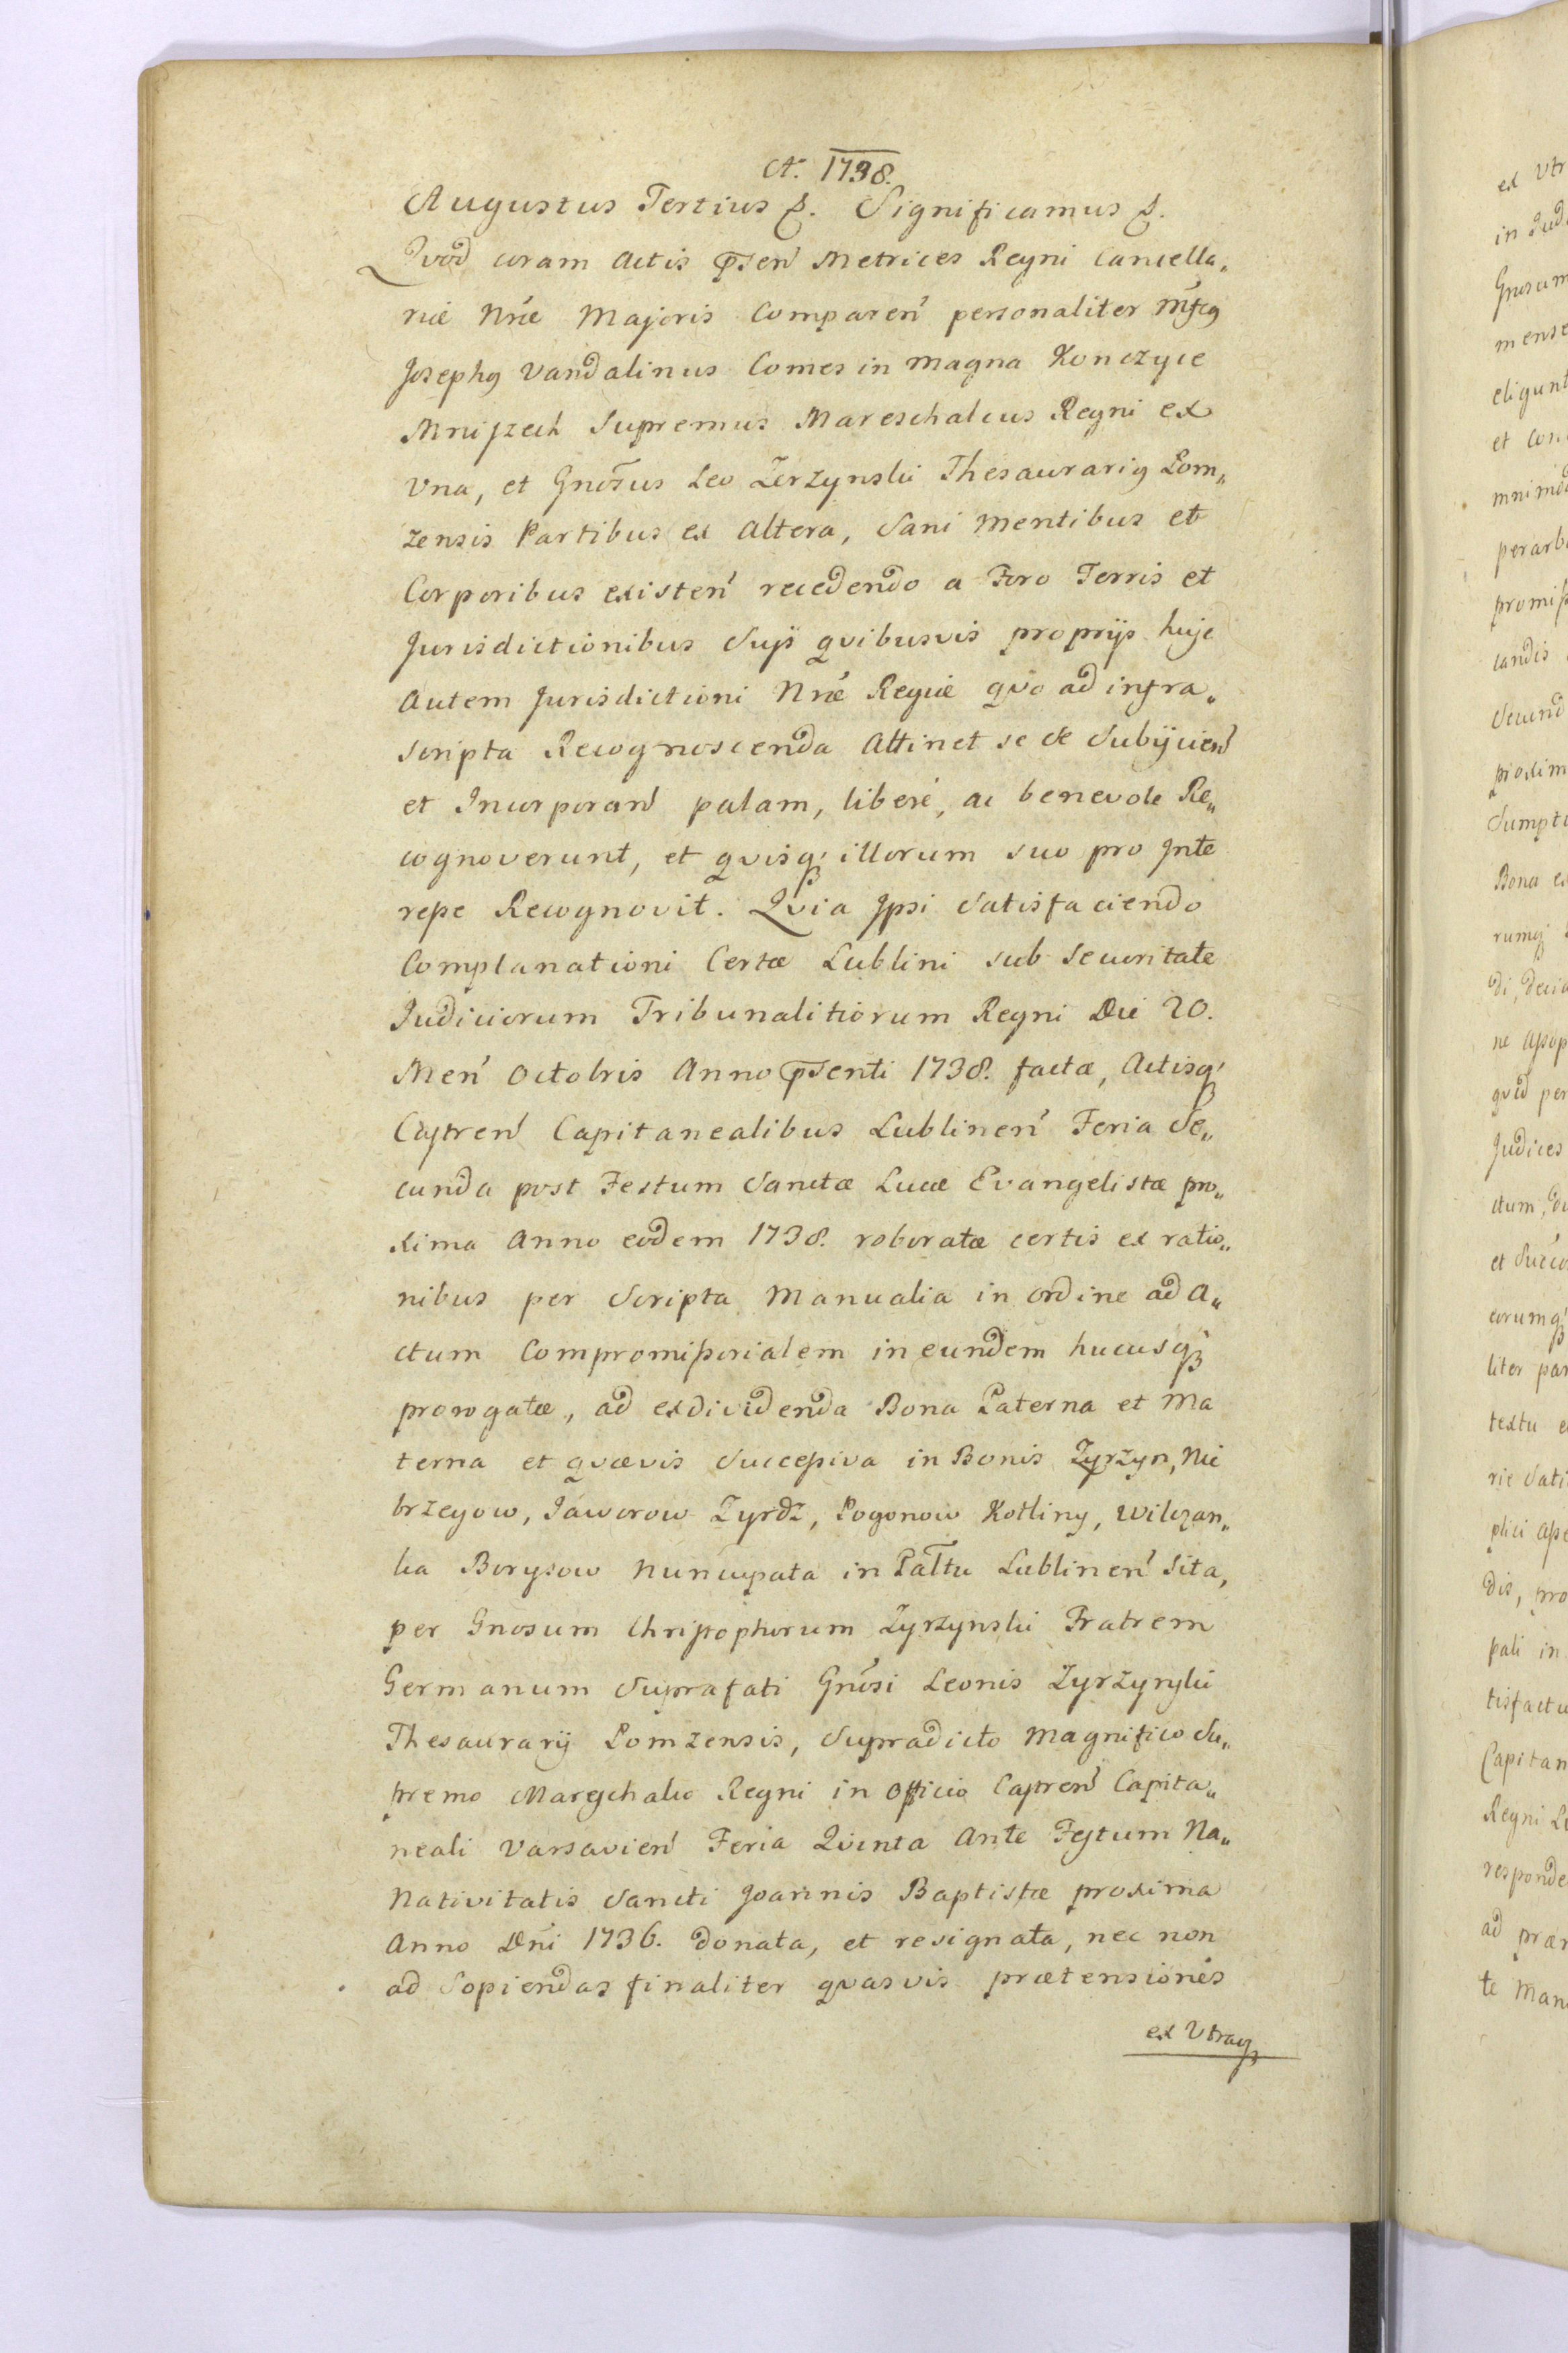 A. 1738.
Augustus Tertius &. Significamus &.
Qvod coram Actis pnsen Metrices Regni Cancella„
riæ Nræ Majoris Comparen personaliter Mfcus
Josephus Vandalinus Comes in Magna Konczyce
Mniszech Supremus Mareschalcus Regni ex
Una, et Gnosus Leo Zerzynski Thesaurarius Lom„
zensis Partibus ex Altera, Sani Mentibus et
Corporibus existen recedendo a Foro Terris et
Jurisdictionibus Suis qvibusvis proprijs huic
Autem Jurisdictioni Nræ Regiæ qvo ad infra„
scripta Recognoscenda Attinet se se Subijcien
et Incorporan palam, libere, ac benevole Re„
cognoverunt, et qvisq illorum suo pro Inte
resse Recognovit. Qvia Ipsi Satisfaciendo
Complanationi Certæ Lublini sub Securitate
Judiciorum Tribunalitiorum Regni Die 20.
Men Octobris Anno pnsenti 1738. factæ, Actisq
Castren Capitanealibus Lublinen Feria Se„
cunda post Festum Sanctæ Lucæ Evangelistæ pro„
xima Anno eodem 1738. roboratæ certis ex ratio„
nibus per Scripta Manualia in ordine ad A„
ctum Compromissorialem ineundem hucusq
prorogatæ, ad exdividenda Bona Paterna et Ma
terna et qvævis Successiva in Bonis Zyrzyn, Nie
brzegow, Jaworow Zyrdz, Pogonow Kotliny, Wilczan„
ka Borysow nuncupata in Palttu Lublinen Sita,
per Gnosum Christophorum Zyrzynski Fratrem
Germanum Suprafati Gnosi Leonis Zyrzynski
Thesaurarij Lomzensis, Supradicto Magnifico Su„
premo Mareschalco Regni in Officio Castren Capita„
neali Varsavien Feria Qvinta Ante Festum Na„
Nativitatis Sancti Joannis Baptistæ proxima
Anno Dni 1736. donata, et resignata, nec non
ad Sopiendas finaliter qvasvis prætensiones
ex Utraq